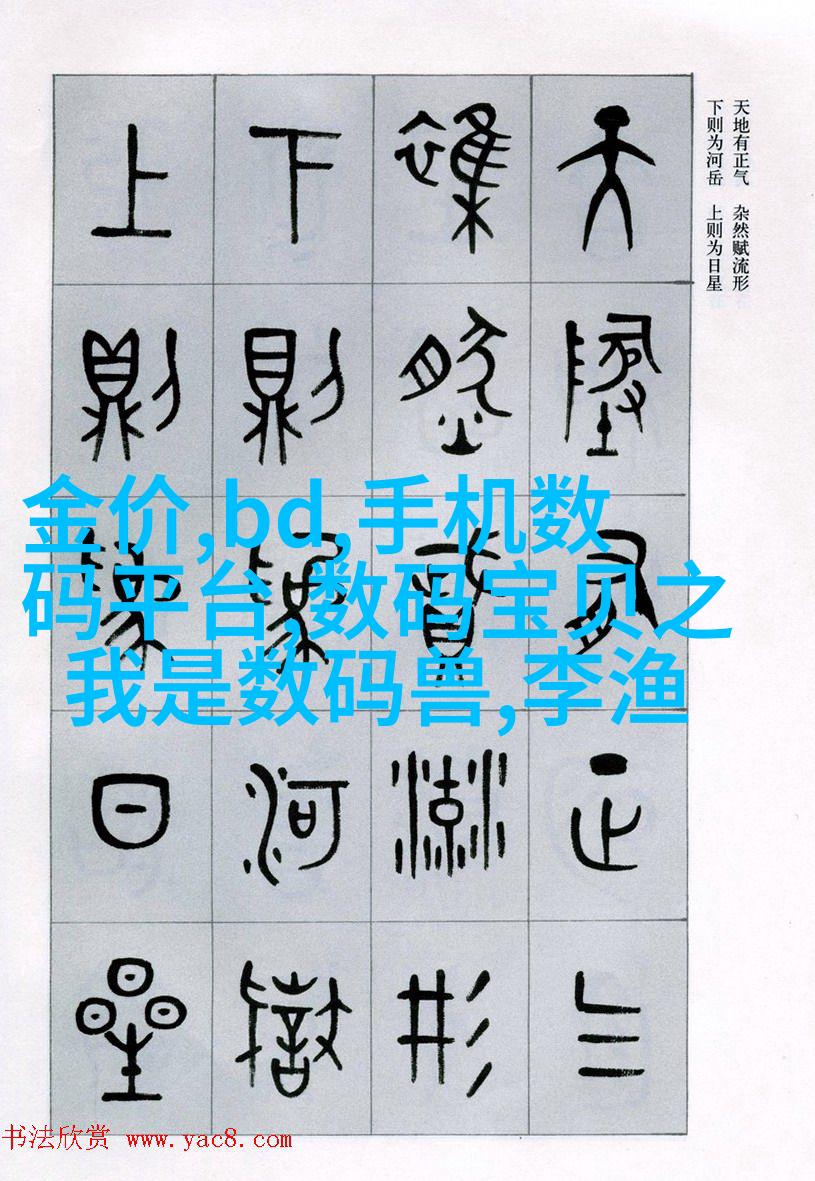 天地有正气 杂然赋流形
下则为河岳 上则为日星
天地有正气
雜然賦流形
下則為河嶽
上則為日星
金价,bd,手机数
码平台,数码宝贝之
我是数码兽,李渔
书法欣赏 www.yac8.com